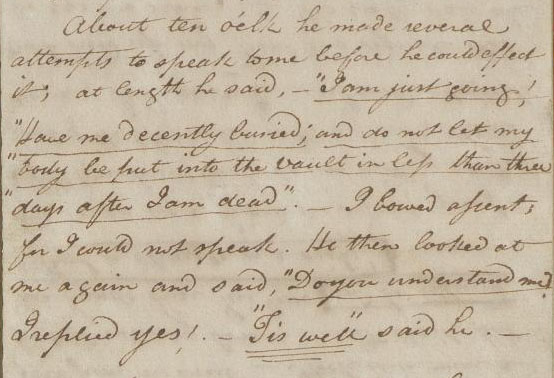 About ten o'clk he made several
attempts to speak to me before he could effect
it; at length he said, – "I am just going!
"Have me decently buried; and do not let my
"body be put into the vault in less than three
"days after I am dead". – I bowed assent;
for I could not speak. He then looked at
me again and said, "Do you understand me?
I replied yes!. – "Tis well" said he. –